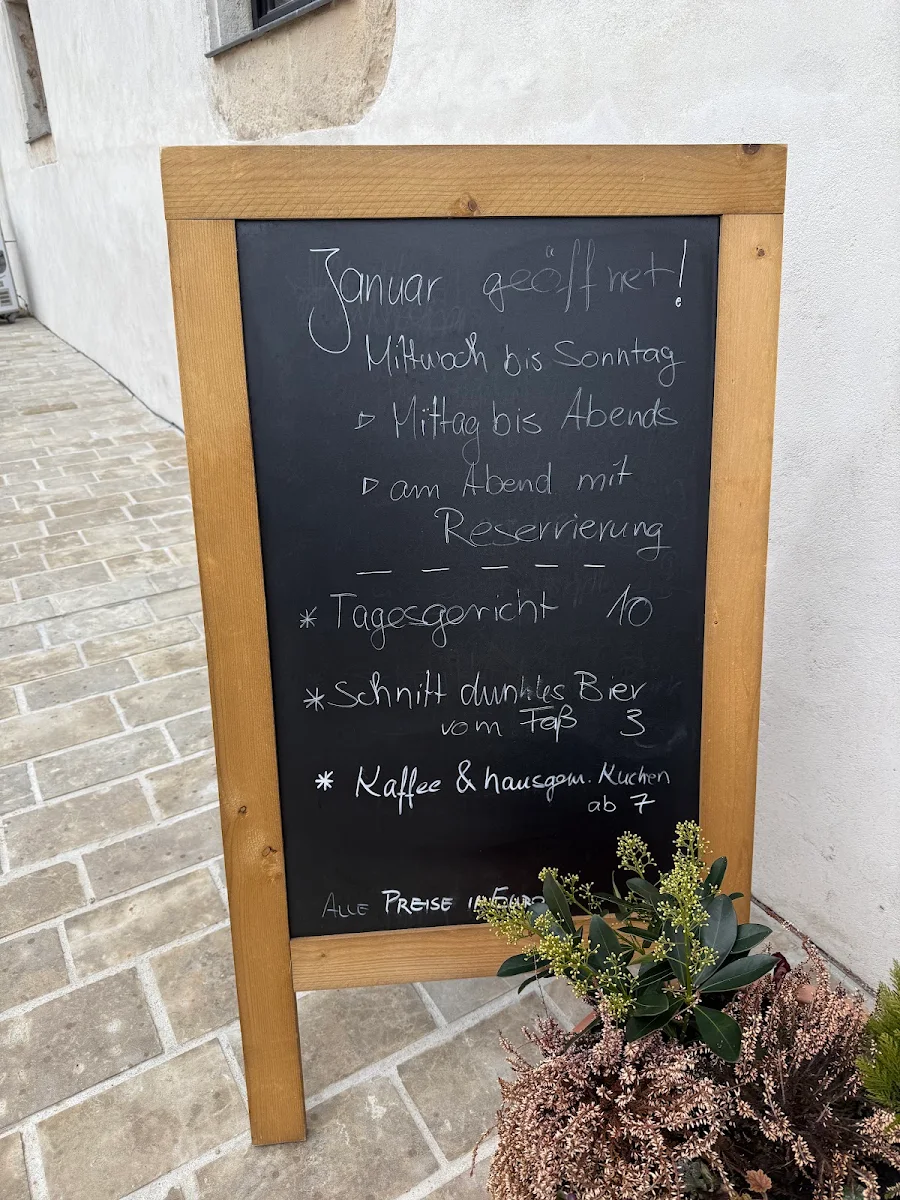 Januar geöffnet!
Mittwoch bis Sonntag
▷ Mittag bis Abends
▷ am Abend mit
Reservierung
— — — — —
* Tagesgericht 10
* Schnitt dunkles Bier
vom Faß 3
* Kaffee & hausgem. Kuchen
ab 7
ALLE PREISE IN EURO